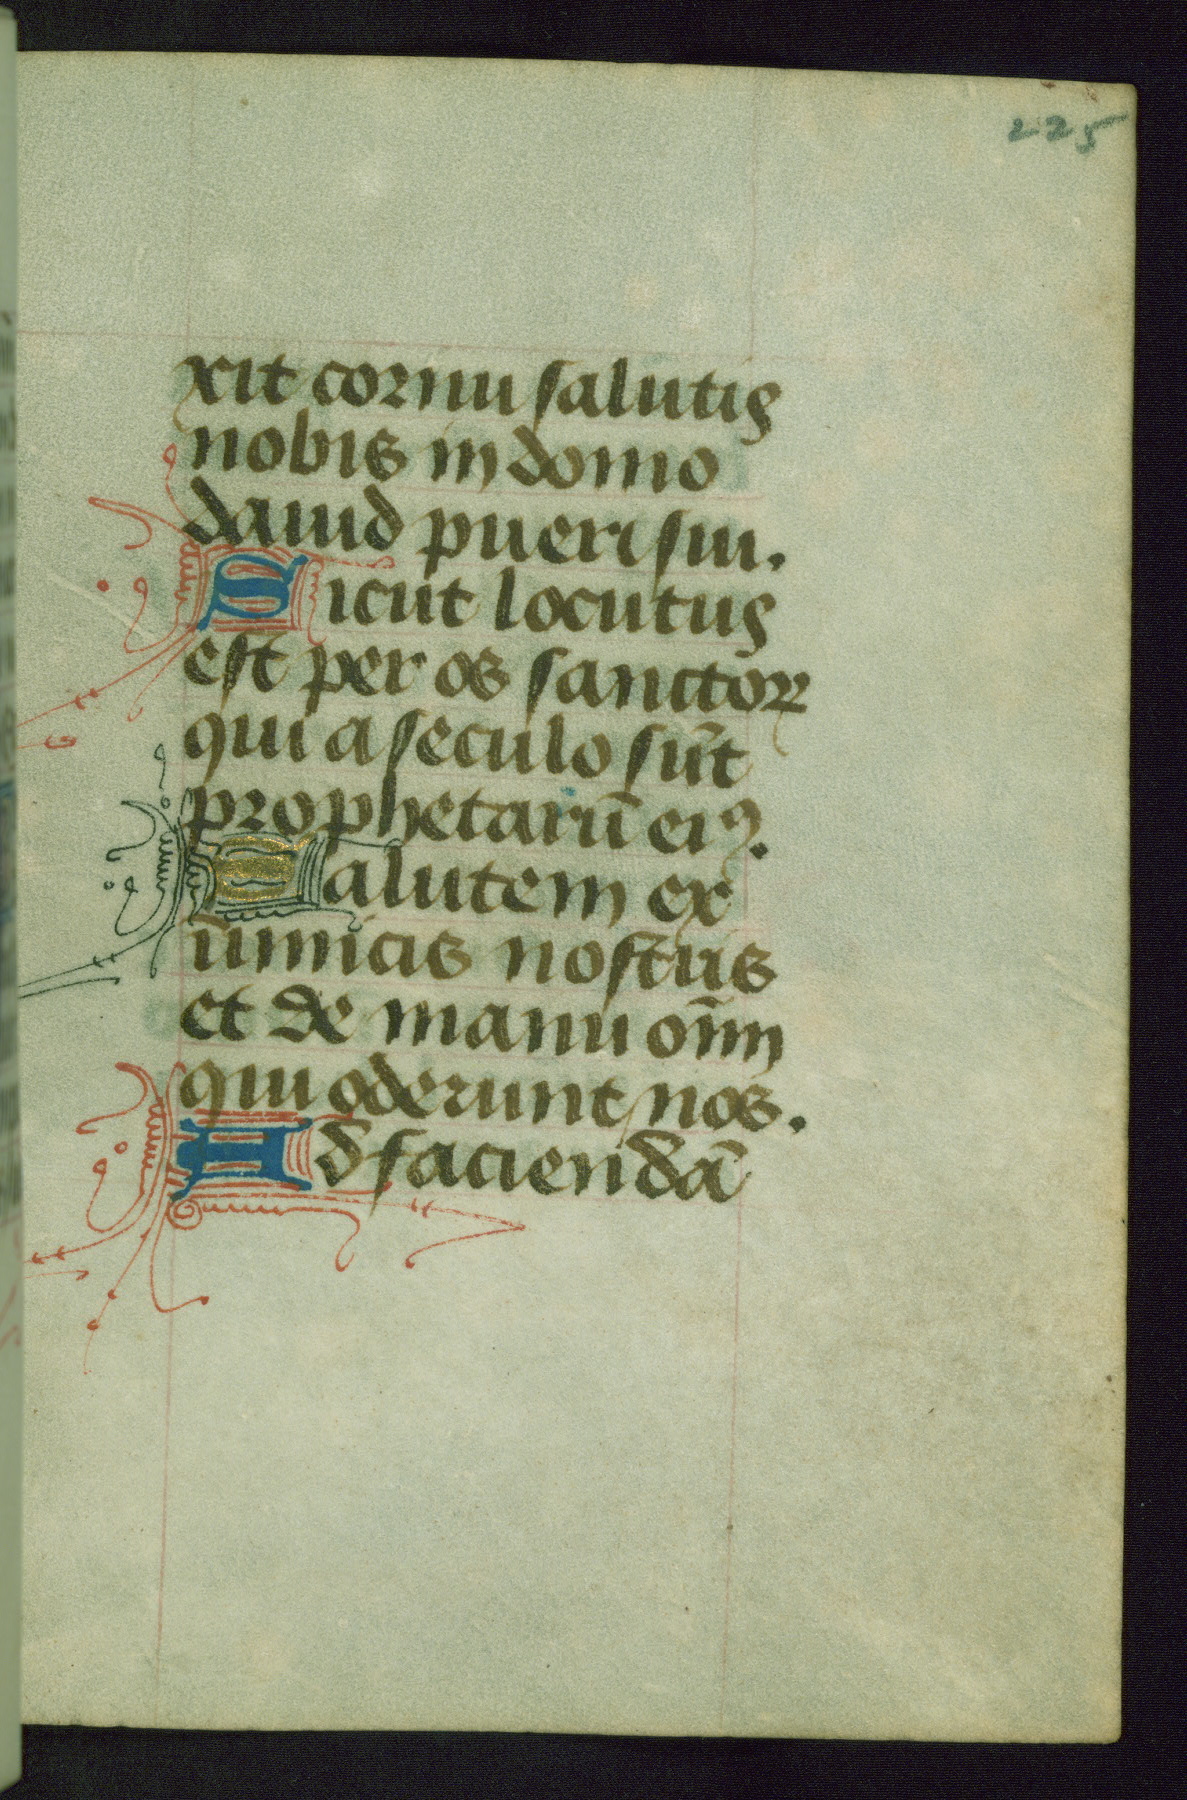 225
xit cornu salutis
nobis in domo
dauid pueri sui.
Sicut locutus
est per os sanctoꝝ
qui a seculo sūt
prophetarū eiꝰ.
Salutem ex
inimicis nostris
et de manu oīm
qui oderunt nos.
Ad faciendā